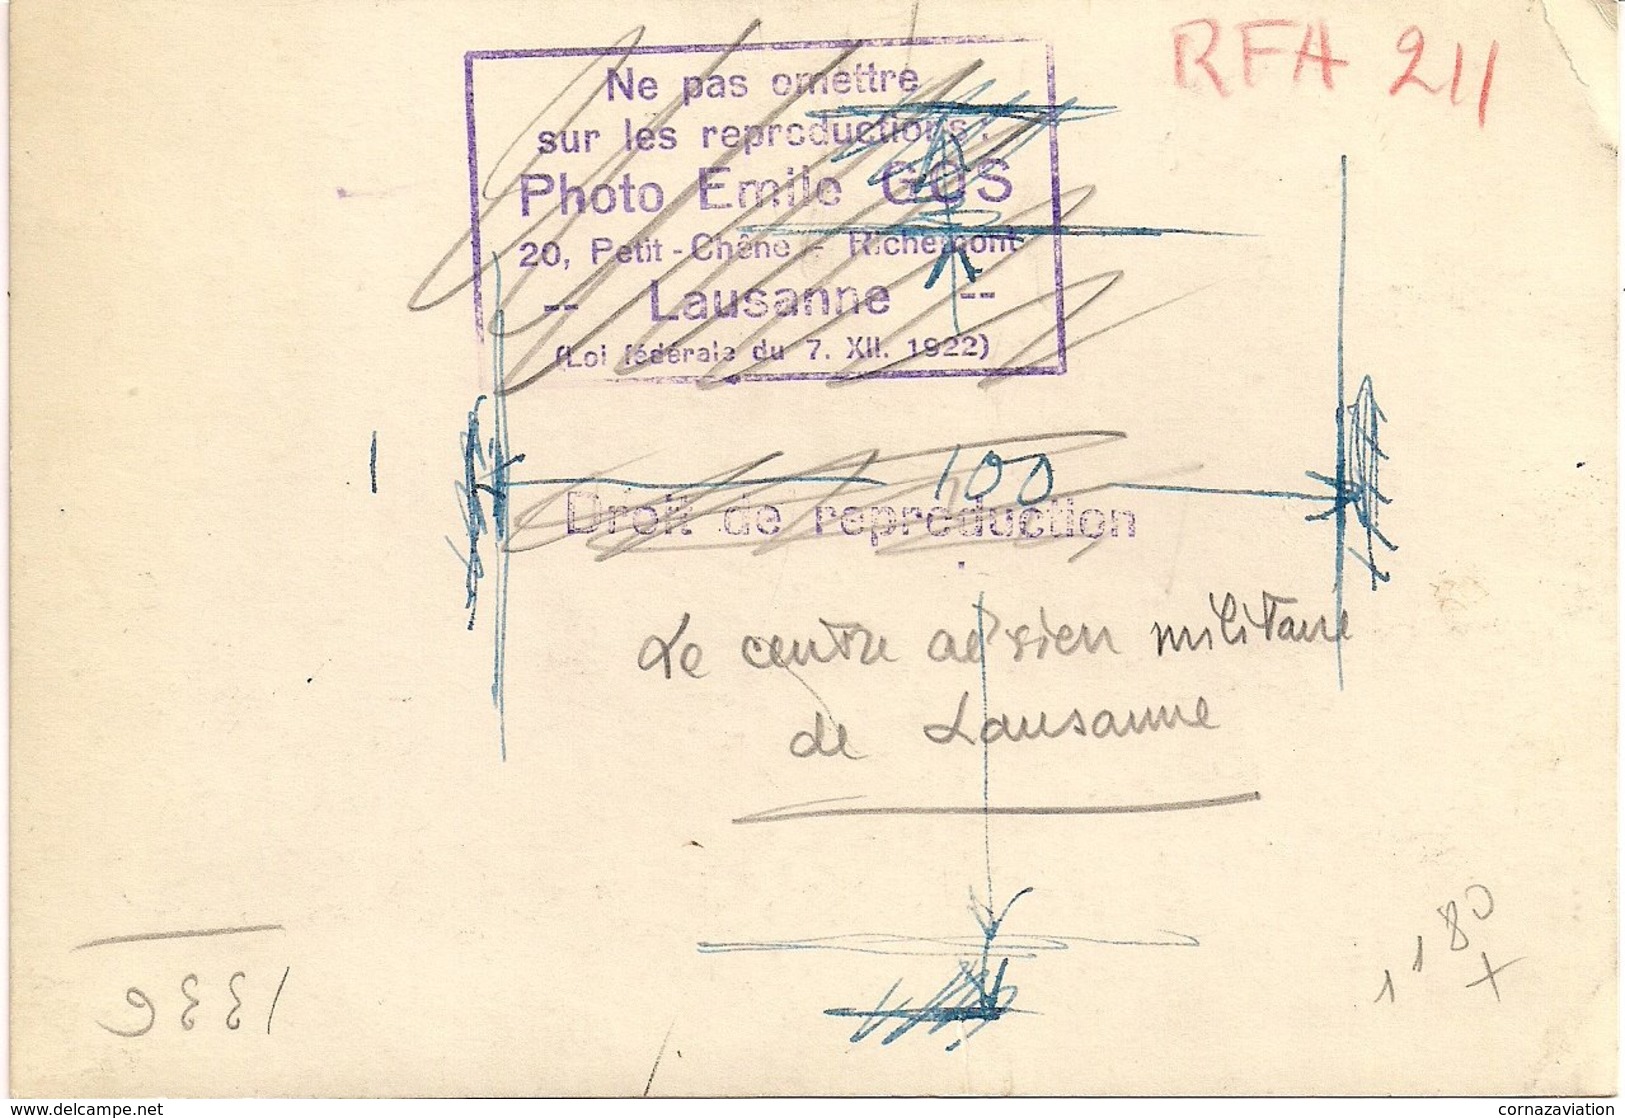 RFA 211
Ne pas omettre
sur les reproductions:
Photo Emile GOS
20, Petit-Chêne - Richemont
-- Lausanne --
(Loi fédérale du 7. XII. 1922)
100
Droit de reproduction
Le centre aérien militaire
de Lausanne
1180
www.delcampe.net
cornazaviation